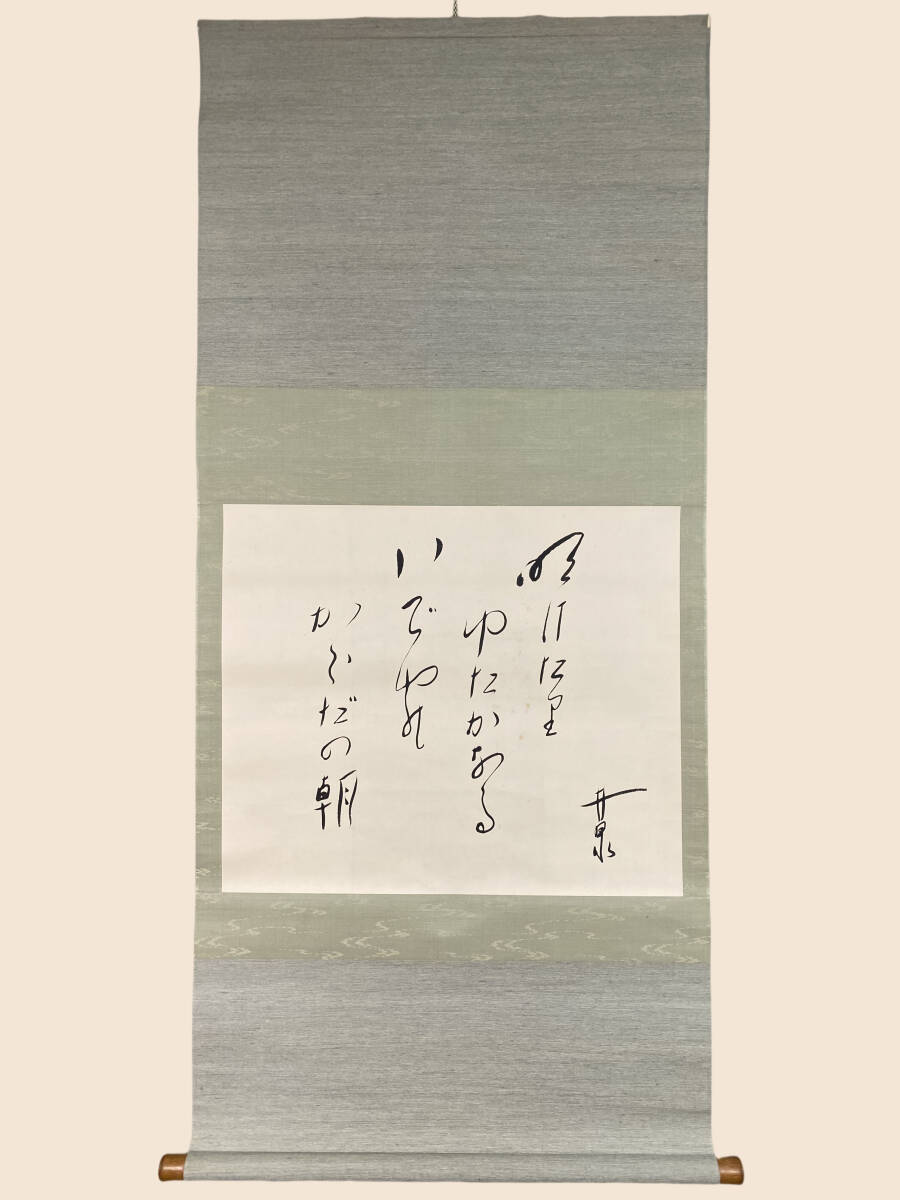 井泉
明けたり
ゆたかなる
いでゆの
からだの朝